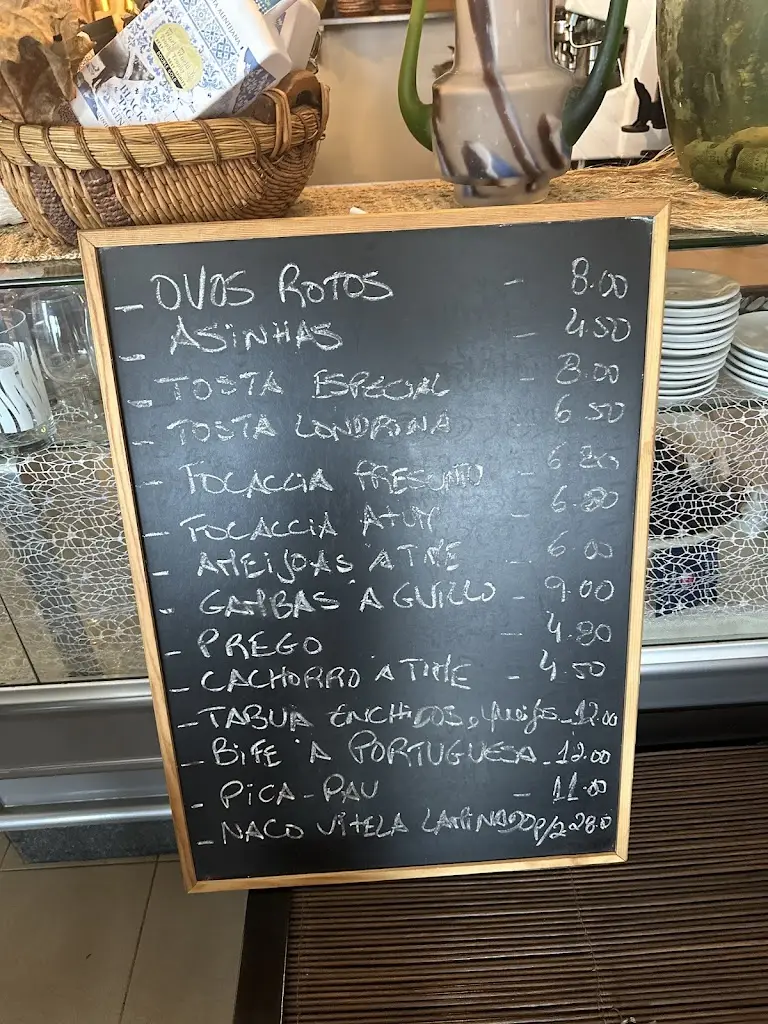 - OVOS ROTOS - 8.00
- ASINHAS - 4.50
- TOSTA ESPECIAL - 8.00
- TOSTA LONDRINA - 6.50
- FOCACCIA PRESUNTO - 6.80
- FOCACCIA ATUM - 6.80
- AMEIJOAS A TIME - 6.00
- GAMBAS À GUILLO - 9.00
- PREGO - 4.80
- CACHORRO A TIME - 4.50
- TABUA ENCHIDOS, queijos - 12.00
- BIFE À PORTUGUESA - 12.00
- PICA-PAU - 11.00
- NACO VITELA LAMINADO P/2 28.0